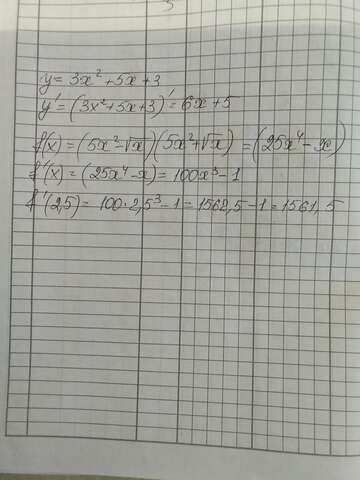 y = 3x² + 5x + 3
y' = (3x² + 5x + 3)' = 6x + 5
f(x) = (5x² - √x)(5x² + √x) = (25x⁴ - x)
f'(x) = (25x⁴ - x)' = 100x³ - 1
f'(2,5) = 100 · 2,5³ - 1 = 1562,5 - 1 = 1561,5